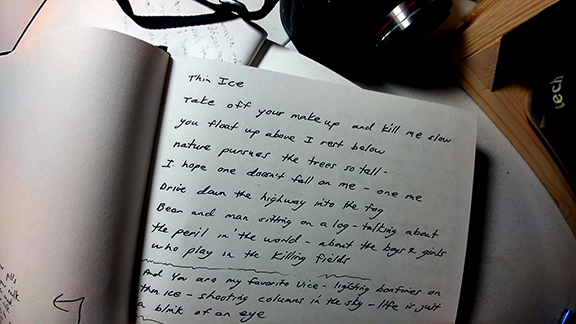 Thin Ice
Take off your makeup and kill me slow
you float up above I rest below
nature pursues the trees so tall-
I hope one doesn't fall on me - one me
Drive down the highway into the fog
Bear and man sitting on a log - talking about
the peril in the world - about the boys & girls
who play in the killing fields
And you are my favorite vice - lighting bonfires on
thin ice - shooting columns in the sky - life is just
a blink of an eye
tech